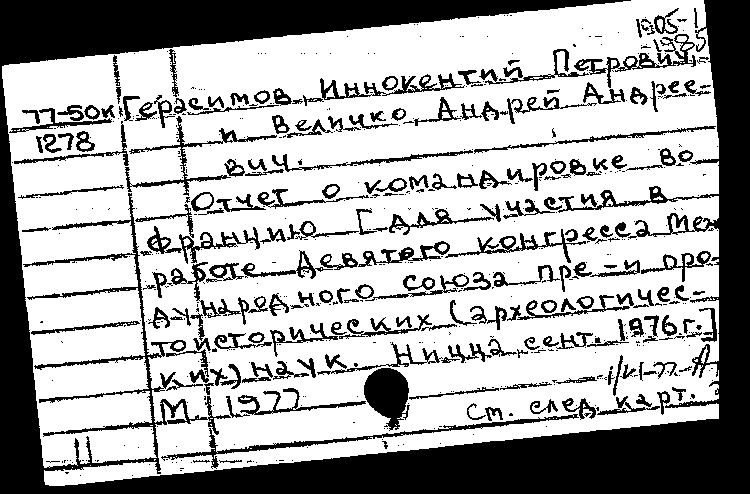 1905-1
-1985
77-50к Герасимов, Иннокентий Петрович,
1278 и Величко, Андрей Андрее-
вич.
Отчет о командировке во
Францию [для участия в
работе Девятого конгресса Меж
дународного союза пре-и про-
тоисторических (археологичес-
ких) наук. Ницца, сент. 1976 г.]
М. 1977
1/VI-77-А
См. след. карт.
11